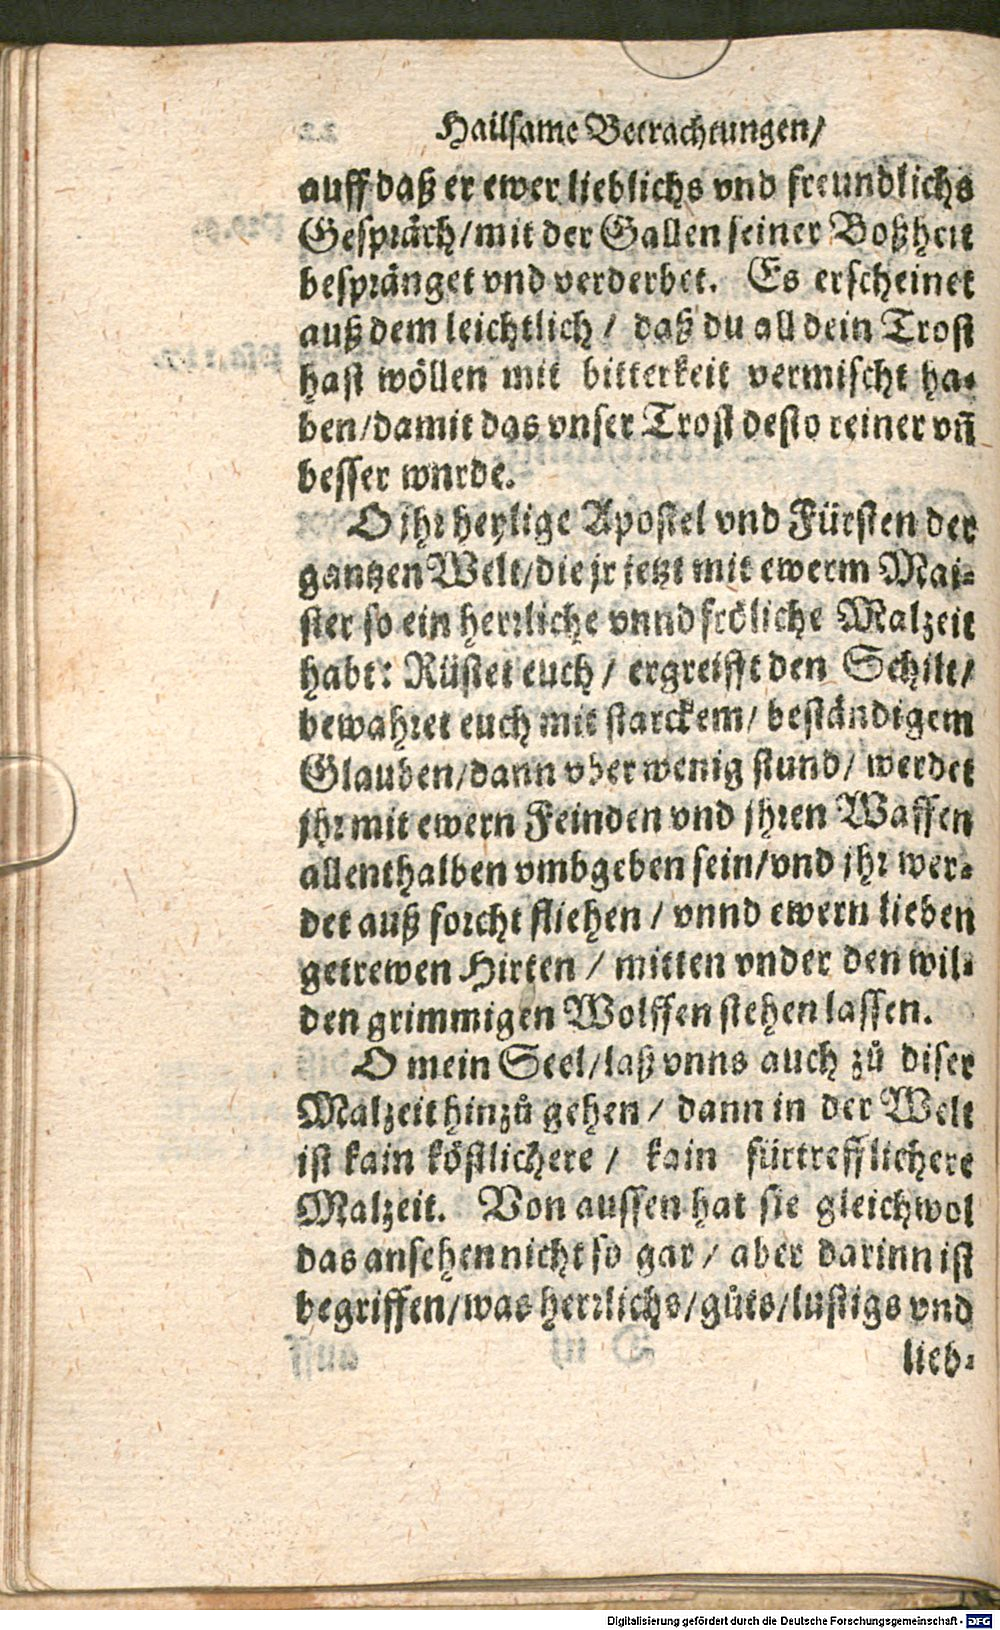 Hailsame Betrachtungen/
auff daß er ewer lieblichs vnd freundlichs
Gespräch/mit der Gallen seiner Boßheit
bespränget vnd verderbet. Es erscheinet
auß dem leichtlich/ daß du all dein Trost
hast wöllen mit bitterkeit vermischt ha-
ben/damit das vnser Trost desto reiner vn̄
besser wurde.
O jhr heylige Apostel vnd Fürsten der
gantzen Welt/die jr jetzt mit ewerm Mai-
ster so ein herrliche vnnd fröliche Malzeit
habt: Rüstet euch/ ergreifft den Schilt/
bewahret euch mit starckem/ beständigem
Glauben/dann vber wenig stund/ werdet
jhr mit ewern Feinden vnd jhren Waffen
allenthalben vmbgeben sein/vnd jhr wer-
det auß forcht fliehen/ vnnd ewern lieben
getrewen Hirten/ mitten vnder den wil-
den grimmigen Wolffen stehen lassen.
O mein Seel/laß vnns auch zů diser
Malzeit hinzů gehen/ dann in der Welt
ist kain köstlichere/ kain fürtrefflichere
Malzeit. Von aussen hat sie gleichwol
das ansehen nicht so gar/ aber darinn ist
begriffen/was herrlichs/gůts/lustigs vnd
lieb-
Digitalisierung gefördert durch die Deutsche Forschungsgemeinschaft - DFG